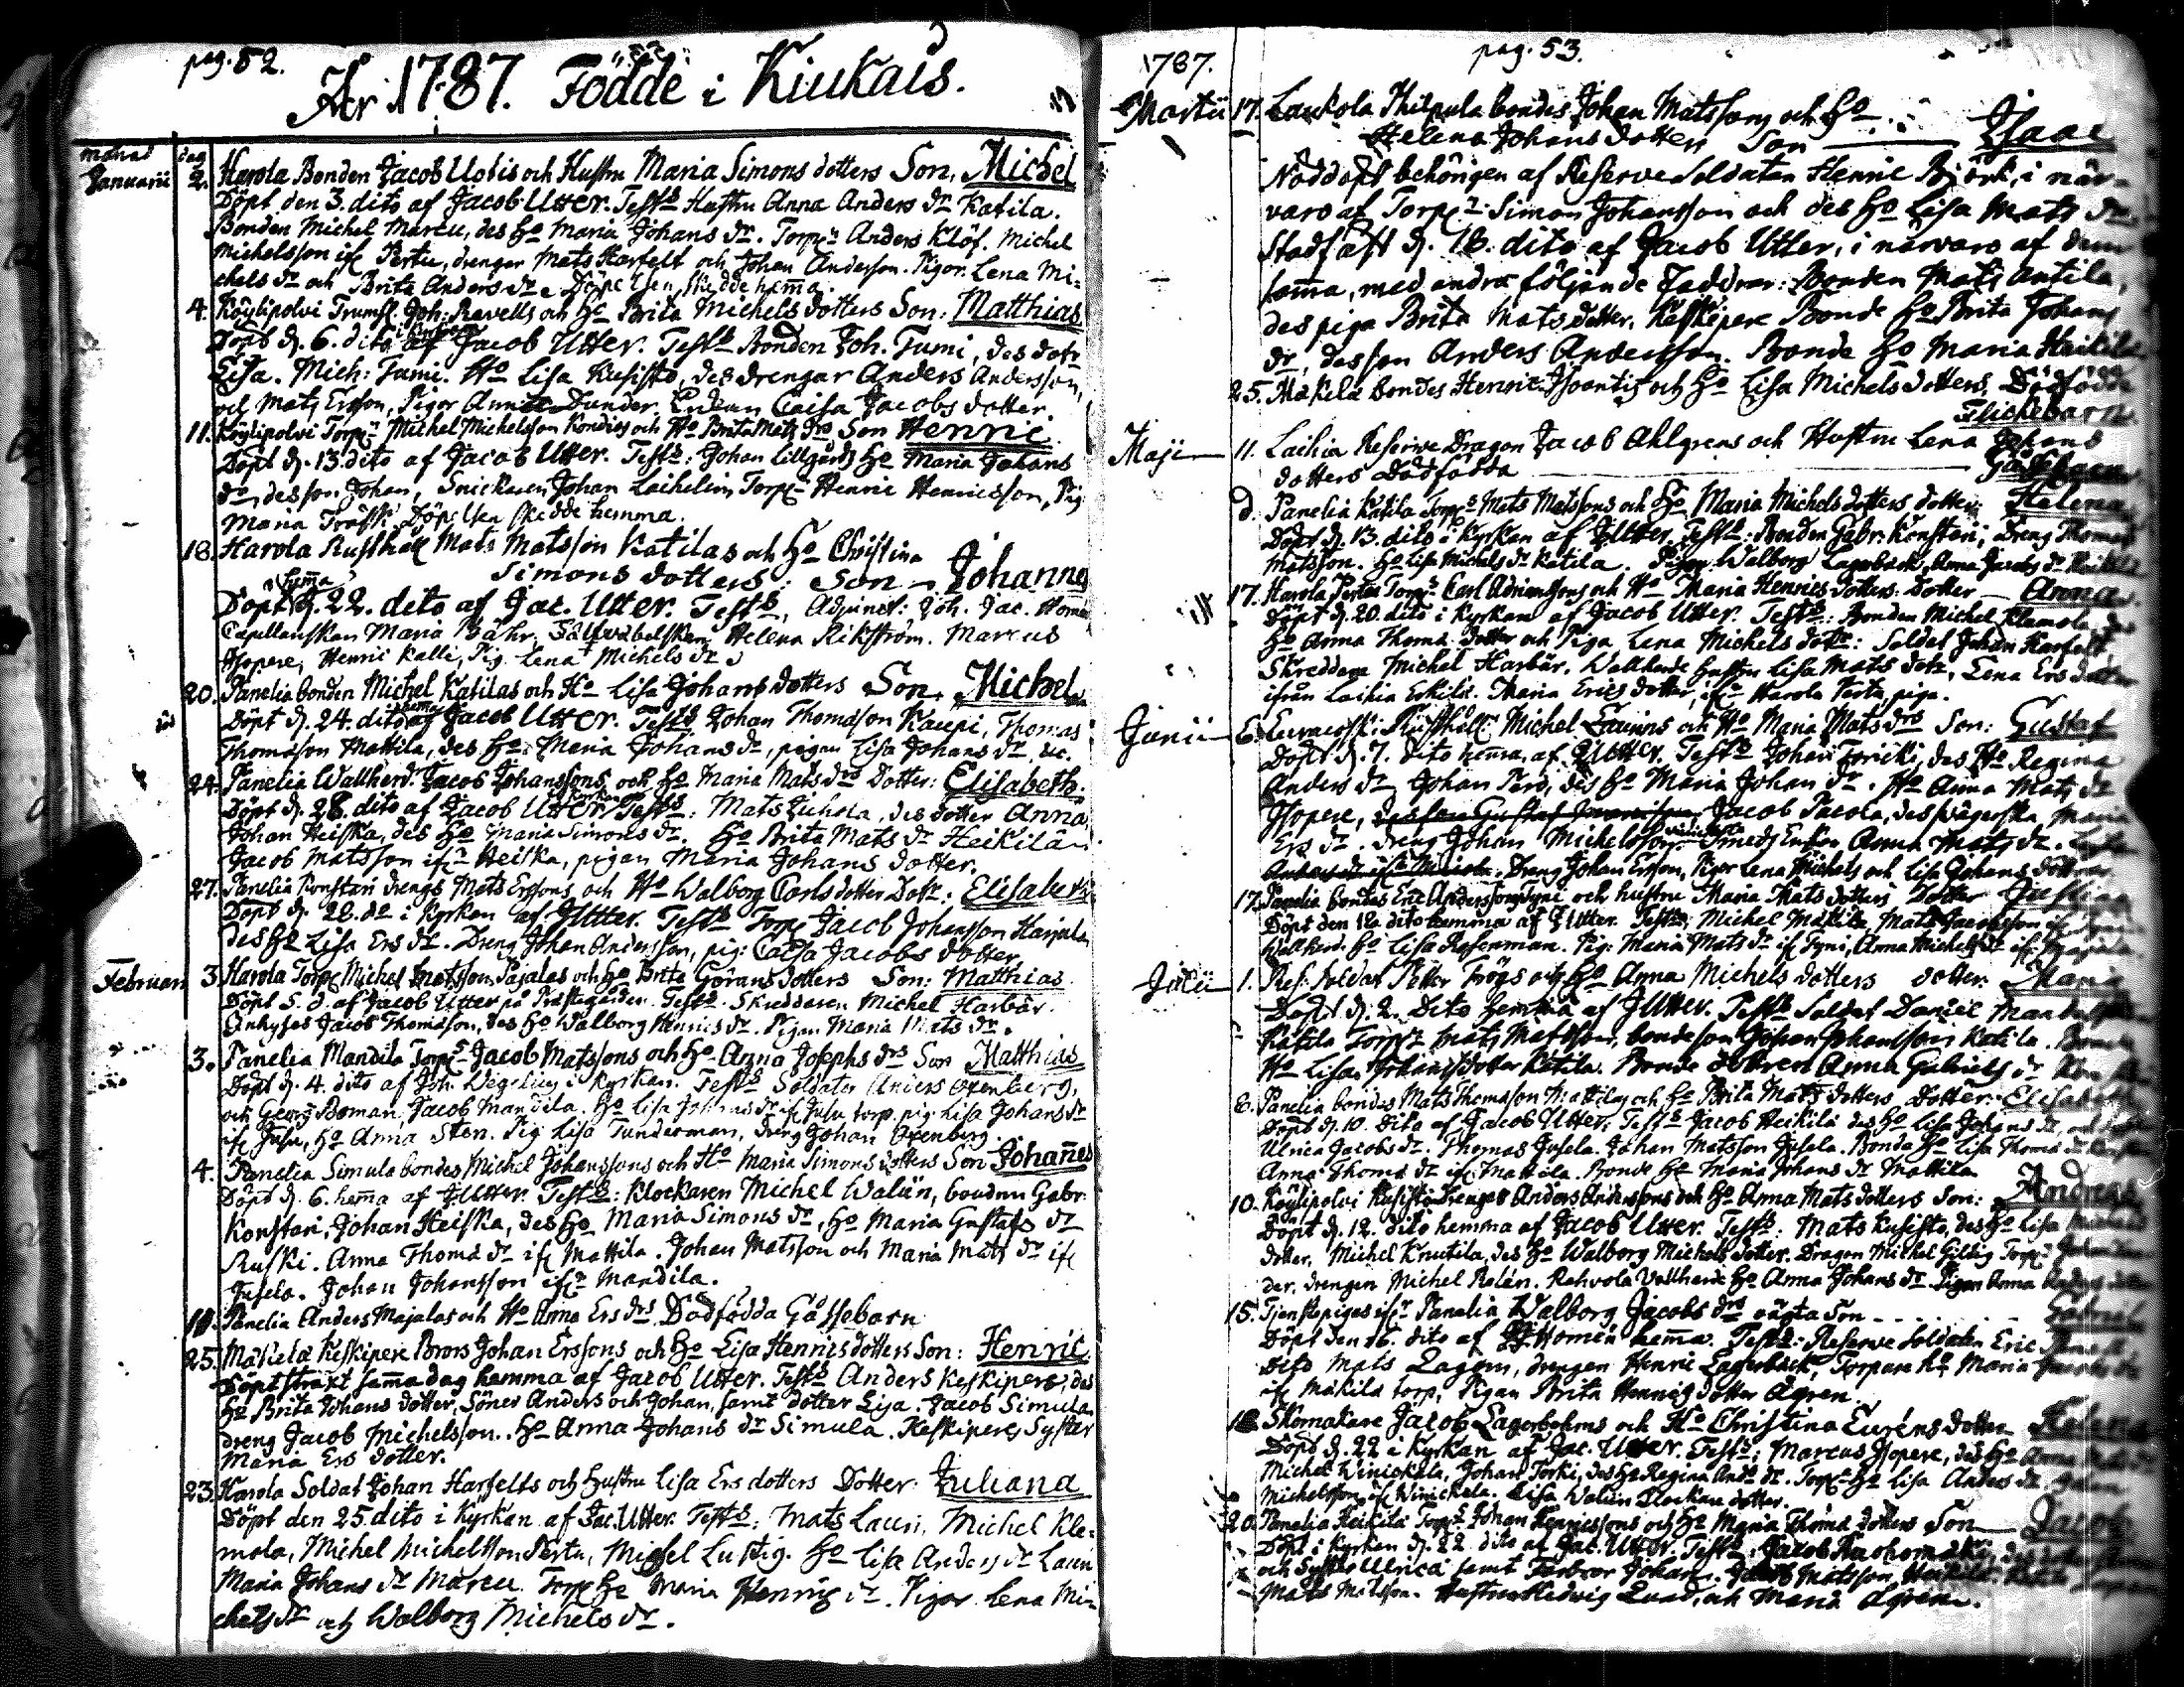 pag. 52.
År 1787. Födde i Kiukais.
månad dag
Januarii 2. Harola Bonden Jacob Uotis och Hustru Maria Simons dotters Son, Michel
Döpt den 3. dito af Jacob Utter. Testes Hustru Anna Anders dr Katila.
Bonden Michel Marcu, des Ho Maria Johans dr. Torpr Anders Klöf. Michel
Michelsson ifr Pertu, drengar Mats Harfelt och Johan Andersson. Pigor Lena Mi-
chels dr och Brita Anders dr. Döpelsen skedde hema.
4. Köylipolvi Trumsl. Joh: Ravells och Ho Brita Michels dotters Son: Matthias
Döpt d. 6. dito i Kyrkan af Jacob Utter. Testes Bonden Joh. Tumi, des dotr
Lisa. Mich: Tumi. Ho Lisa Kusisto, des drengar Anders Andersson,
och Mats Ersson, Pigor Anna Dunder. Enkan Caisa Jacobs dotter.
11. Köylipolvi Torpr Michel Michelsson Kondies och Ho Brita Mats drs Son Henric
Döpt d. 13. dito af Jacob Utter. Testes: Johan Lillgårds Ho Maria Johans
dr, des son Johan, Snickaren Johan Laihelin, Torpr Henric Henricsson, Pig
Maria Träsk. Döpelsen skedde hemma.
18. Harola Rusthåll Mats Matsson Katilas och Ho Christina
Simons dotters: Son Johannes
Döpt hema d. 22. dito af Jac. Utter. Testes, Adjunct: Joh. Jac. Homen
Capellanskan Maria Bähr. Helena Rikström. Marcus
Isopere, Henric Kalli, Pig. Lena Michels dr
20. Panelia bonden Michel Katilas och Ho Lisa Johans dotters Son, Michel
Döpt d. 24. dito hema af Jacob Utter. Testes Johan Thomasson Kaupi, Thomas
Thomasson Mattila, des Ho: Maria Johans dr, pigan Lisa Johans dr. etc.
24. Panelia Wallherd. Jacob Johanssons och Ho Maria Mats drs Dotter: Elisabeth.
Döpt d. 28. dito af Jacob Utter i Kyrkan Testes: Mats Juhola, des dotter Anna
Johan Heiska, des Ho Maria Simons dr. Ho Brita Mats dr Heikilä
Jacob Matsson ifr Heiska, pigan Maria Johans dotter.
27. Panelia Konstari drengs Mats Erssons och Ho Walborg Carlsdotter Dotr: Elisabeth
Döpt d. 28. do i Kyrkan af J Utter. Testes Torpr Jacob Johansson Harjula
des Ho Lisa Ers dr. Dreng Johan Andersson, pig: Caisa Jacobs dotter
Februarii 3. Harola Torpr Michel Matsson Pajalas och Ho Brita Görans dotters Son: Matthias
Döpt 5. d. af Jacob Utter på Prästegården. Testes. Skreddaren Michel Harbär.
Jacob Thomasson, des Ho Walborg Henrics dr. Pigan Maria Mats dr.
3. Panelia Mandila Torpr Jacob Matssons och Ho Anna Josephs drs Son Matthias
Döpt d. 4. dito af Joh. Wegelius i Kyrkan. Testes Soldater Anders Oxenberg,
och Georg Boman, Jacob Mandila. Ho Lisa Johans dr ifr Jusu torp. pig. Lisa Johans dr
ifr Jusu, Ho Anna Sten. Pig Lisa Tunderman, dreng Johan Oxenberg.
4. Panelia Simula bondes Michel Johanssons och Ho Maria Simons dotters Son Johañes
Döpt d. 6. hema af J Utter. Testes: Klockaren Michel Walin, bonden Gabr:
Konstari, Johan Heiska, des Ho Maria Simons dr, Ho Maria Gustafs dr
Ruski. Anna Thoma dr ifr Mattila. Johan Matsson och Maria Mats dr ifr
Jusela. Johan Johansson ifr Mandila.
Panelia Anders Majalas och Ho Anna Ers drs Dödfödda Gåssebarn
25. Mäkelä Keskipere Brors Johan Erssons och Ho Lisa Henrics dotters Son: Henric.
Döpt straxt samma dag hemma af Jacob Utter. Testes Anders Keskipere, des
Ho Brita Johans dotter, Söner Anders och Johan, samt dotter Lisa. Jacob Simula
dreng Jacob Michelsson. Ho Anna Johans dr Simula. Keskiperes Syster
Maria Ers dotter.
23. Harola Soldat Johan Harfelts och Hustru Lisa Ers dotters Dotter Juliana
Döpt den 25. dito i Kyrkan af Jac. Utter. Testes: Mats Lauri, Michel Kle-
mola, Michel Michelsson Pertu, Michel Lustig. Ho Lisa Anders dr Lauri
Maria Johans dr Marcu. Torp Ho Maria Henrics dr. Pigor Lena Mi-
chels dr och Walborg Michels dr.
pag. 53.
1787.
Martii 17. Laukola Thilpula bondes Johan Matssons och Ho
Helena Johans dotters Son Isaac
Nöddöpt behörigen af Reserve Soldaten Henric Björk, i när-
varo af Torpr Simon Johansson och des Ho Lisa Mats dr
Stadfäst d. 18. dito af Jacob Utter, i närvaro af dem
sama, med andra följande Faddrar: Bonden Mats Antila,
des piga Brita Mats dotter. Keskipere Bonde Ho Brita Johans
dr, des son Anders Andersson. Bonde Ho Maria Heikilä
25. Mäkelä bondes Henric och Ho Lisa Michels dotters Dödfödda
Flickebarn
Maji 11. Laihia Reserve Dragon Jacob Ahlgrens och Hustru Lena Johans
dotters Dödfödda Gåssebarn
d. Panelia Katila Torprs Mats Matssons och Ho Maria Michels dotters dotter Helena
Döpt d. 13. dito i Kyrkan af J Utter. Testes: Bonden Gabr: Konstari, Dreng Thomas
Matsson. Ho Lisa Michels dr Katila. Pigor Walborg Lagerbäck, Anna Jacobs dr
17. Harola Pertu Torpr Carl Adrianssons och Ho Maria Henrics dotters: Dotter Anna.
Döpt d. 20. dito i Kyrkan af Jacob Utter. Testes: Bonden Michel Klemola, des
Ho Anna Thoma dotter och Piga Lena Michels dotr: Soldat Johan Harfelt,
Skreddare Michel Harbär. Wallherde hustru Lisa Mats dotr, Lena Ers dotter
ifrån Laihia Eskila. Maria Erics dotter, ifr Harola Pertu piga.
Junii 6. Eurakoski Rusthåll Michel och Ho Maria Mats drs Son: Gustaf
Döpt d. 7. dito hema af J Utter. Testes Johan Toricki, des Ho Regina
Anders dr, Johan Pero, des Ho Maria Johan dr. Ho Anna Mats dr
Isopere, Jacob Pacola, des Maria
Ers dr. dreng Johan Michelsson, Smeds Enkan Anna Mats dr.
Dreng Johan Ersson, Pigor Lena Michels och Lisa Johans dotter
17. Panelia bondes Eric Anderssons och hustru Maria Mats dotters Dotter Justina
Döpt den 18. dito hemma af J Utter. Testes, Michel Mattila, Mats Jacobsson
Wallherd. Ho Lisa Rosenman. Pig. Maria Mats dr, Anna Michels dr
Julii 1. Res: soldat Petter Trögs och Ho Anna Michels dotters dotter: Maria
Döpt d. 2. Dito hemma af J Utter. Testes Soldat Daniel
Katila Torpr Mats Mattsson, bondeson Johan Johansson Katila.
Ho Lisa Johans dotter Katila. Bonde dotren Anna Gabriels dr
8. Panelia bondes Mats Thomasson Mattilas och Ho Brita Mats dotters Dotter: Elisabeth
Döpt d. 10. Dito af Jacob Utter. Testes Jacob Heikilä des Ho Lisa Johans dr,
Ulrica Jacobs dr. Thomas Jusela. Johan Matsson Jusela. Bonde Ho Lisa Thoma dr
Anna Thoma dr ifr Mattila. Bonde Ho Maria Johans dr Mattila
10. Köylipolvi Kusisto Drenges Anders Anderssons och Ho Anna Mats dotters Son: Andreas
Döpt d. 12. dito hemma af Jacob Utter. Testes: Mats Kusisto, des Ho Lisa Michels
dotter, Michel Knutila, des Ho Walborg Michels dotter. Dragon Michel Gillig Torpr
der, drengen Michel Relén. Rahvola Vallherde Ho Anna Johans dr. Pigan Anna
15. Tjenstepiges ifr Panelia Walborg Jacobs drs oägta Son Gabriel
Döpt den 16. dito af JJ Homén hema. Testes: Reserve Soldaten Eric
Dito Mats Lagom, drengen Henric Lagerbäck, Torpare Ho Maria
ifr Mäkilä torp, Pigan Brita Henrics dotter Ågren.
18. Skomakare Jacob Lagerbohms och Ho Christina Euréns dotter Helena
Döpt d. 22 i Kyrkan af Jac. Utter. Testes: Marcus Isopere, des Ho Anna
Michel Winickala, Johan Torki, des Ho Regina And. dr. Torpr Ho Lisa Anders dr.
Michelsson ifr Winickala. Lisa Walin Clockare dotter.
20. Panelia Heikilä Torprs Johan Henricssons och Ho Maria Thoma dotters Son Jacob
Döpt i Kyrkan d. 22. dito af Jac. Utter. Testes: Jacob
och Syster Ulrica samt Farbror Johan. Jacob Matsson Heikilä.
Mats Matsson. Hustru Hedvig Lund, och Maria Ågren.